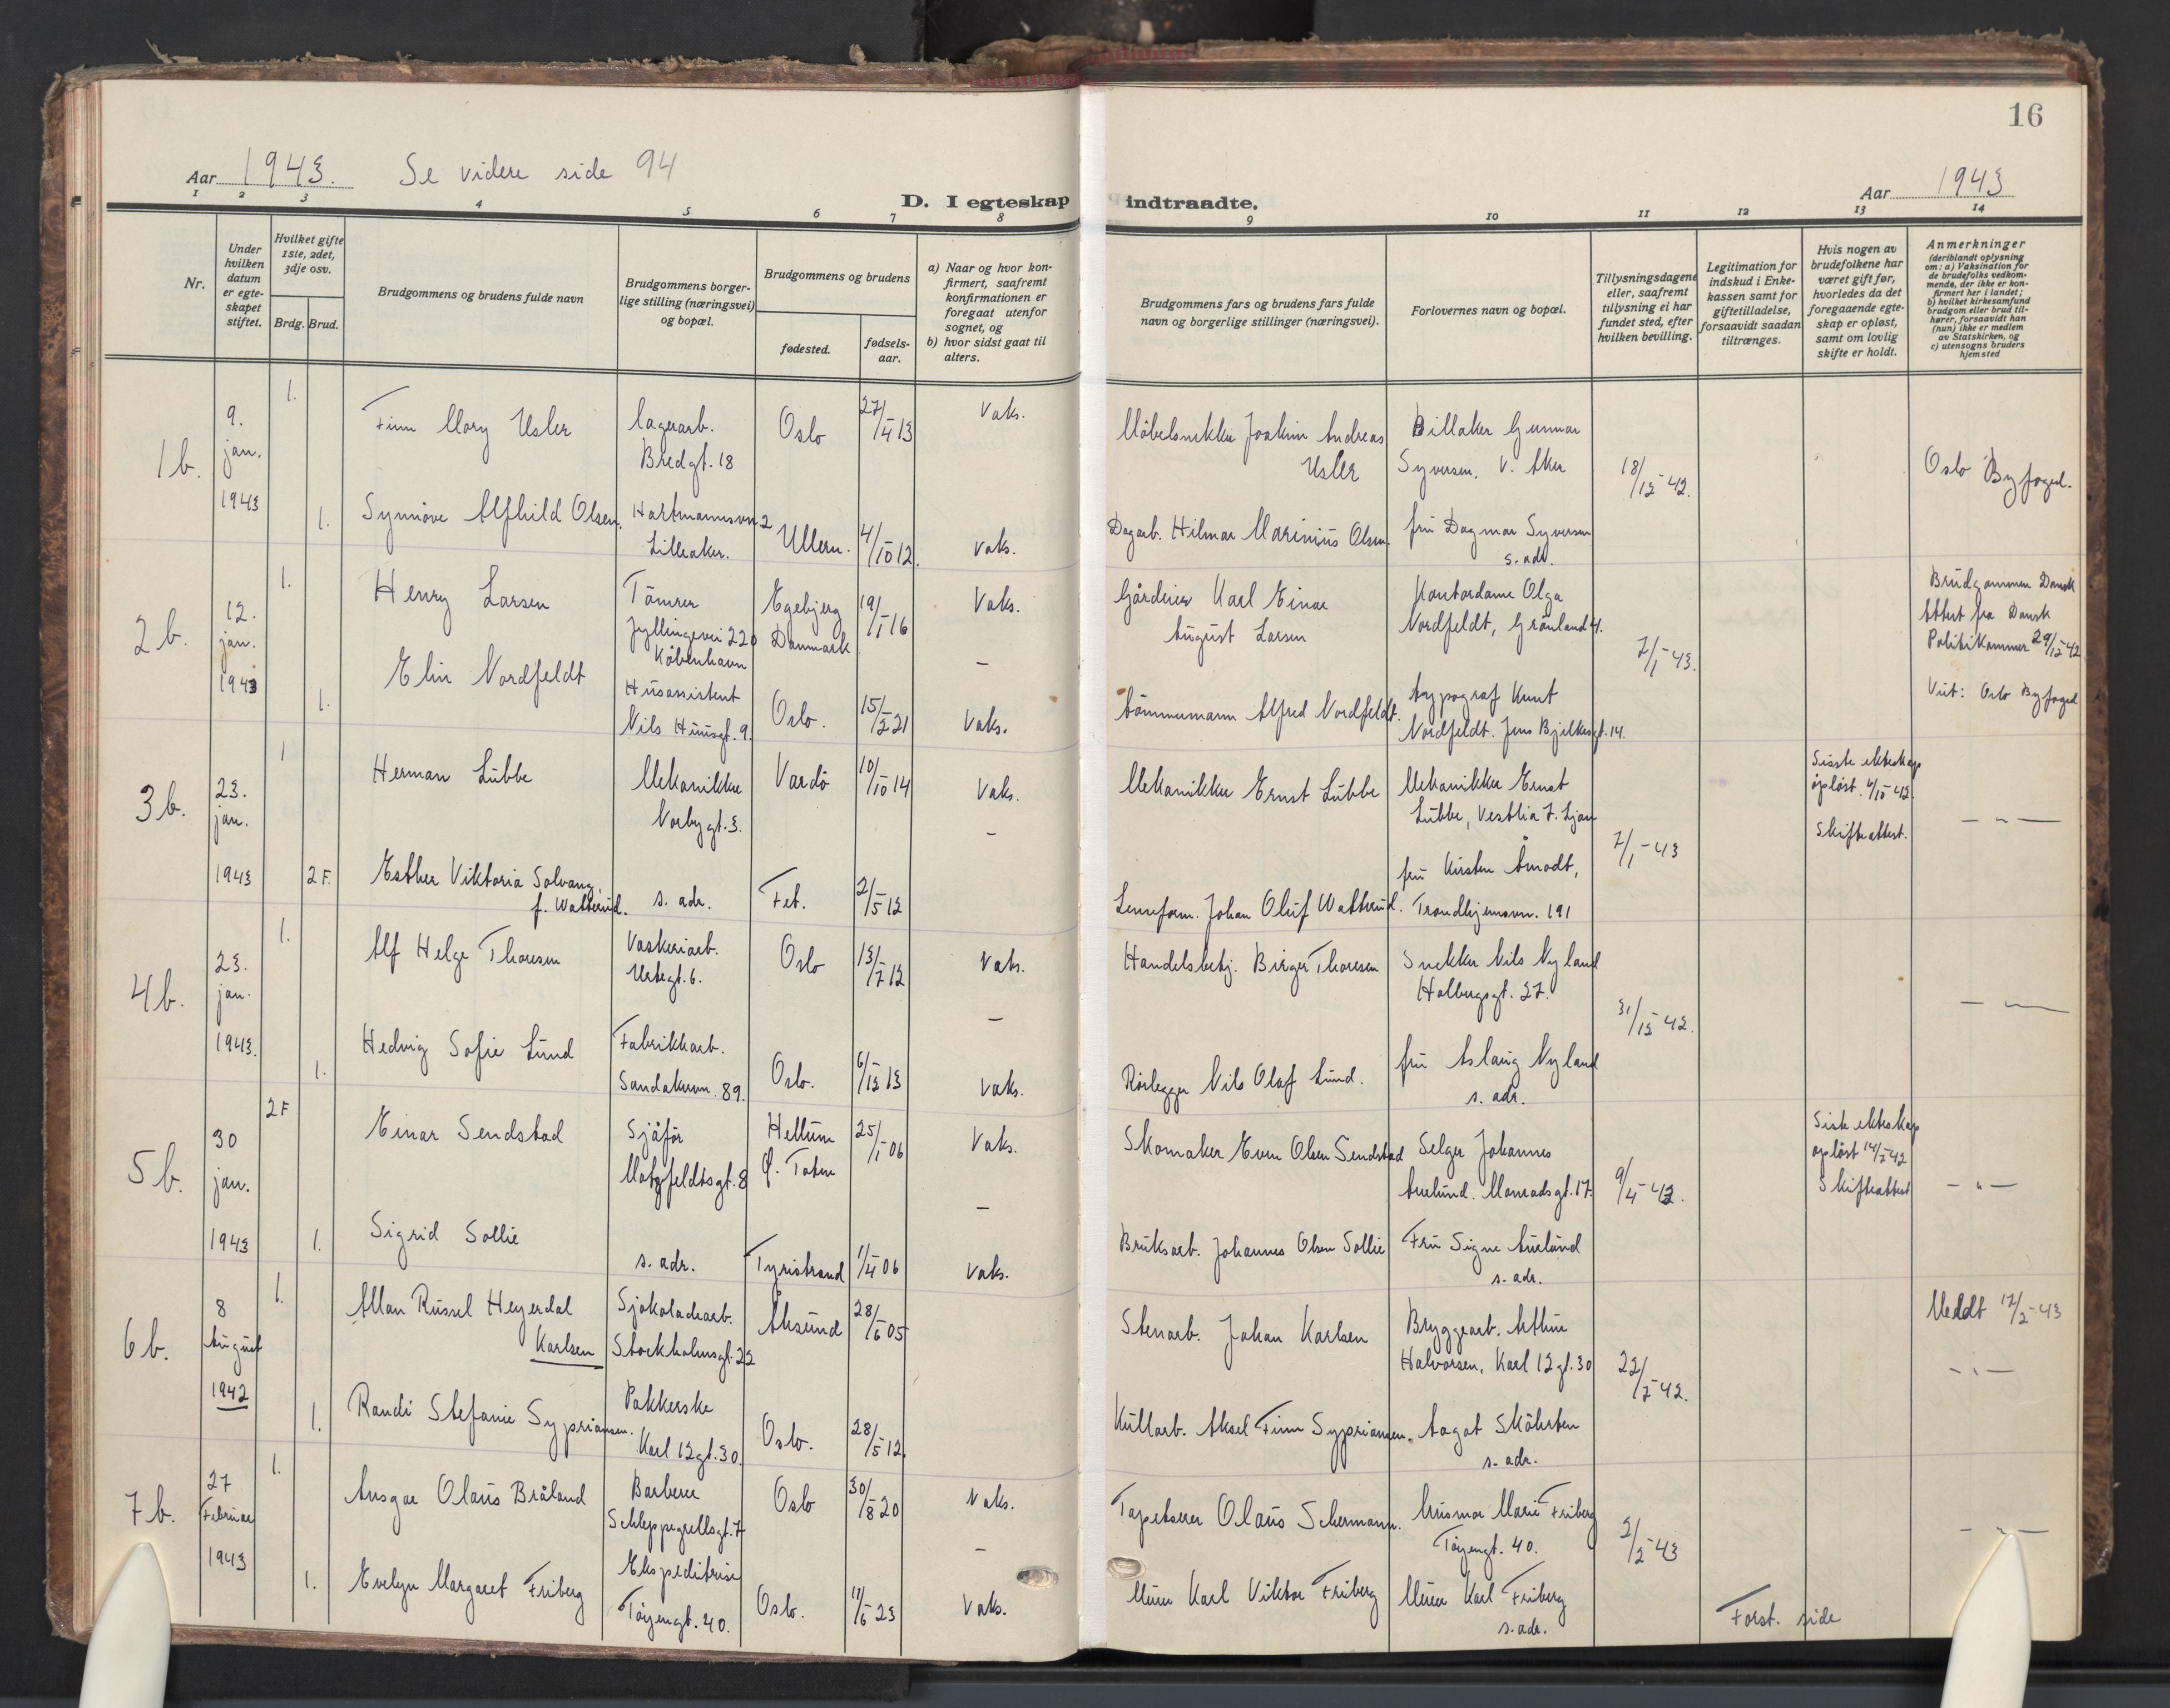 16
Aar 1943. Se videre side 94
Aar 1943
D. I egteskap indtraadte.
1 2 3 4 5 6 7 8 9 10 11 12 13 14
Nr.
Under hvilken datum er egteskapet stiftet.
Hvilket gifte 1ste, 2det, 3dje osv.
Brdg. Brud.
Brudgommens og brudens fulde navn
Brudgommens borgerlige stilling (næringsvei) og bopæl.
Brudgommens og brudens
fødested.
fødselsaar.
a) Naar og hvor konfirmert, saafremt konfirmationen er foregaat utenfor sognet, og
b) hvor sidst gaat til alters.
Brudgommens fars og brudens fars fulde navn og borgerlige stillinger (næringsvei).
Forlovernes navn og bopæl.
Tillysningsdagene eller, saafremt tillysning ei har fundet sted, efter hvilken bevilling.
Legitimation for indskud i Enkekassen samt for giftetilladelse, forsaavidt saadan tiltrænges.
Hvis nogen av brudefolkene har været gift før, hvorledes da det foregaaende egteskap er opløst, samt om lovlig skifte er holdt.
Anmerkninger (deriblandt oplysning om: a) Vaksination for de brudefolks vedkommende, der ikke er konfirmert her i landet; b) hvilket kirkesamfund brudgom eller brud tilhører, forsaavidt han (hun) ikke er medlem av Statskirken, og c) utensogns bruders hjemsted
1b. 9. jan. 1943
1. Finn Mory Usler
Lagerarb. Bredgt. 18
Oslo 27/4 13 Vaks.
Møbelsnekker Joakim Andreas Usler
Billaker Gunnar Syversen. V. Aker
18/12-42.
Oslo Byfoged.
1. Synnøve Alfhild Olsen.
Hartmannsvn. 2 Lilleaker.
Ullern. 4/10 12. Vaks.
Dagarb. Hilmar Marinius Olsen
fru Dagmar Syversen s. adr.
2b. 12. jan. 1943
1. Henry Larsen
Tømrer Jyllingevei 220 København
Egebjerg Danmark 19/1 16 Vaks.
–
Gårdeier Karl Einar August Larsen
Kontordame Olga Nordfeldt, Grønland 4.
7/1-43.
Brudgommen Dansk
Attest fra Dansk
Politikammer 29/12-42
Viet: Oslo Byfoged
1. Elin Nordfeldt
Husassistent Nils Huusgt. 9.
Oslo. 15/2 21 Vaks.
Tømmermann Alfred Nordfeldt.
Typograf Knut Nordfeldt. Jens Bjelkesgt. 14.
3b. 23. jan. 1943
1 Herman Lübbe
Mekanikker Norbygt. 3.
Vardø 10/10 14 Vaks.
–
Mekanikker Ernst Lübbe
Mekanikker Ernst Lübbe, Vestlia 7. Ljan
7/1-43
Siste ekteskap opløst. 4/10-42.
Skifteattest.
– " –
2 F. Esther Viktoria Solvang, f. Watterud.
s. adr.
Fet. 2/5 12
Lenseform. Johan Oluf Watterud.
fru Kirsten Åmodt, Trondhjemsvn. 191
4b. 23. jan. 1943.
1. Alf Helge Thoresen
Vaskeriarb. Urtegt. 6.
Oslo 13/7 12 Vaks.
–
Handelsbetj. Birger Thoresen
Snekker Nils Nyland Holbergsgt. 27.
31/12-42.
– " –
1. Hedvig Sofie Lund
Fabrikkarb. Sandakervn. 89.
Oslo. 6/12 13 Vaks.
Rørlegger Nils Olaf Lund.
fru Aslaug Nyland s. adr.
5b. 30 jan. 1943
2 F Einar Sendstad
Sjåfør Motzfeldtsgt. 8
25/1 06 Vaks.
–
Skomaker Even Olsen Sendstad
Selger Johannes Aurlund. Monradsgt. 17.
9/4-42.
Siste ekteskap opløst 14/7-42
Skifteattest
– " –
1. Sigrid Sollie
s. adr.
Tyristrand 1/4 06 Vaks.
Bruksarb. Johannes Olsen Sollie
Fru Signe Aurlund s. adr.
6b. 8 August 1942
1. Allan Russel Heyerdal Karlsen
Sjokoladearb. Stockholmsgt. 22
Aksund 28/6 05
Stenarb. Johan Karlsen
Bryggearb. Arthur Halvorsen, Karl 12 gt. 30
22/7-42.
Meddt 17/2-43
– " –
1. Randi Stefanie Sypriansen.
Pakkerske Karl 12 gt. 30.
Oslo. 28/5 12.
Kullarb. Aksel Finn Sypriansen.
Aagot s. adr.
7b. 27 Februar 1943
1. Ansgar Olaus Bråland
Barberer Schleppegrellsgt. 7
Oslo 30/8 20 Vaks.
–
Tapetserer Olaus Schermann.
Husmor Marie Friberg Tøyengt. 40.
2/2-43
– " –
1. Evelyn Margaret Friberg
Ekspeditrise Tøyengt. 40.
Oslo. 11/6 23 Vaks.
Murer Karl Viktor Friberg
Murer Karl Friberg s. adr.
Forst. side